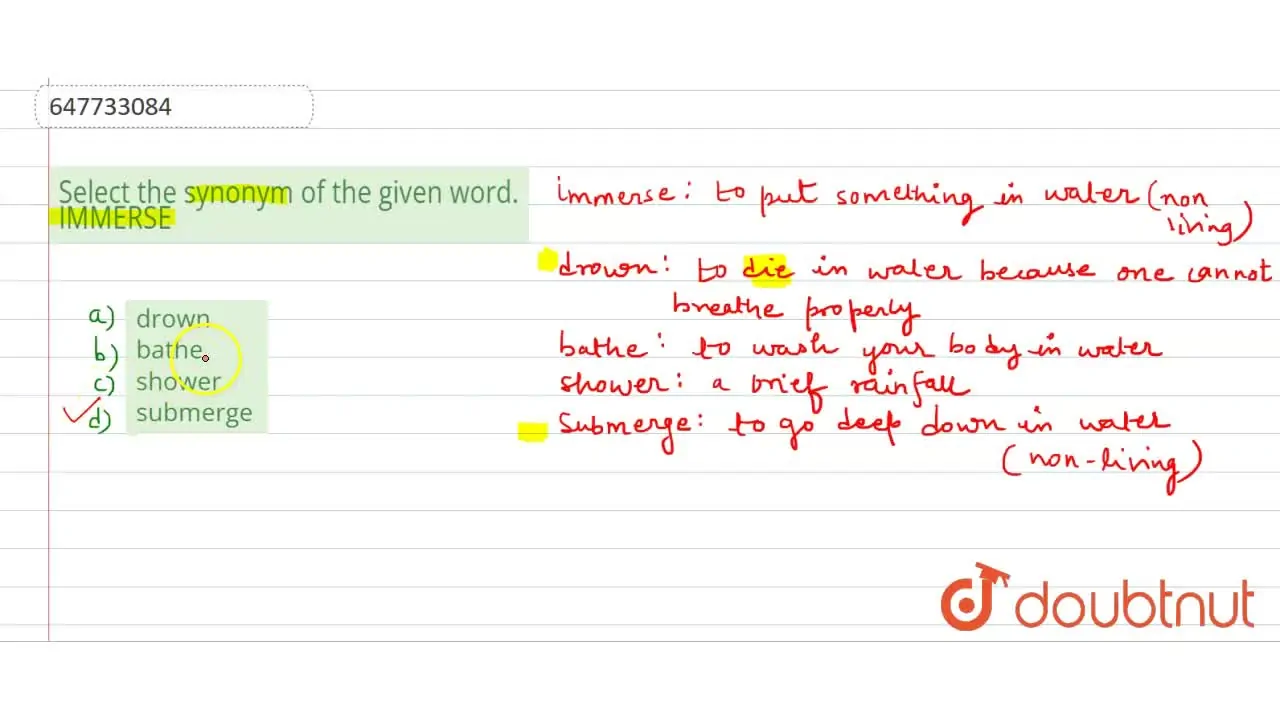 647733084
Select the synonym of the given word.
IMMERSE
a) drown
b) bathe
c) shower
d) submerge
immerse: to put something in water (non
living)
drown: to die in water because one cannot
breathe properly
bathe: to wash your body in water
shower: a brief rainfall
Submerge: to go deep down in water
(non-living)
doubtnut